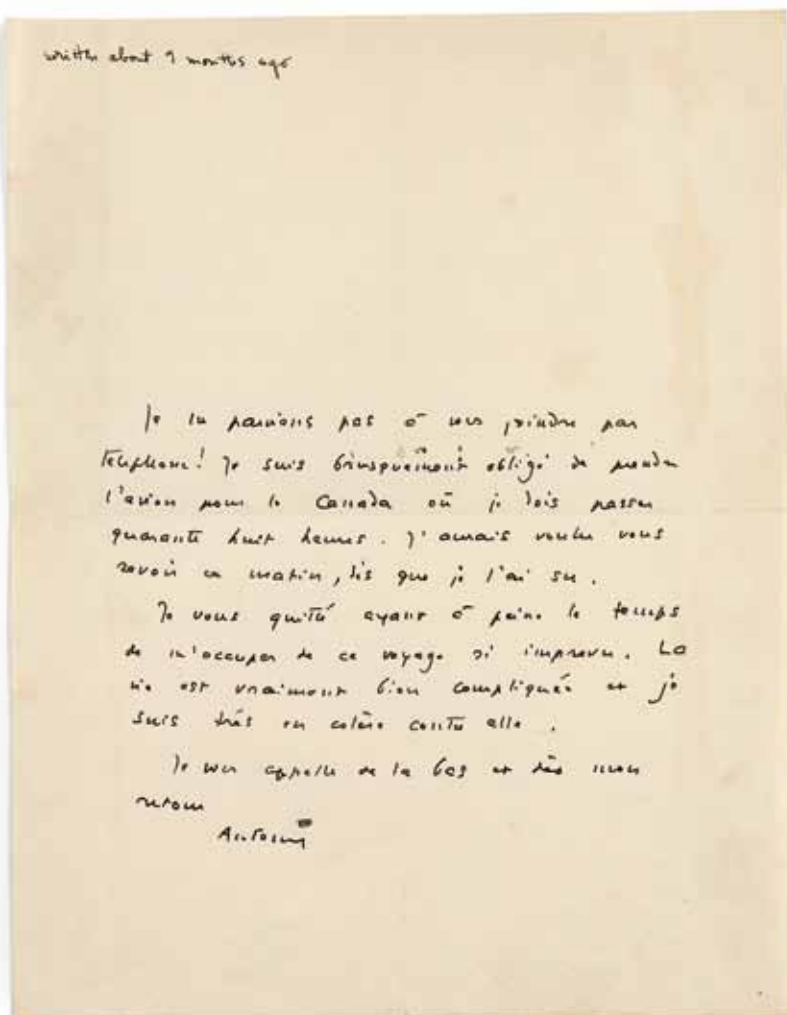 written about 9 months ago
Je ne parviens pas à vous joindre par
téléphone! Je suis brusquement obligé de prendre
l'avion pour le Canada où je dois passer
quarante huit heures. J'aurais voulu vous
revoir ce matin, dès que je l'ai su.
Je vous quitte ayant à peine le temps
de m'occuper de ce voyage si imprevu. La
vie est vraiment bien compliquée et je
suis très en colère contre elle.
Je vous appelle de la bas et dès mon
retour
Antoine